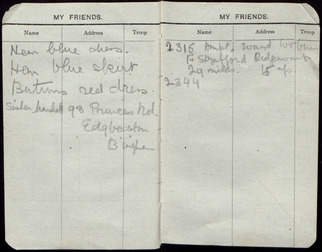 MY FRIENDS.
Name Address Troop
Hem blue dress.
Hem blue skirt
Buttons red dress.
98 Princess Rd.
Edgbaston
B'ingham
MY FRIENDS.
Name Address Troop
2315 round
to Stratford
29 miles. 15
2344